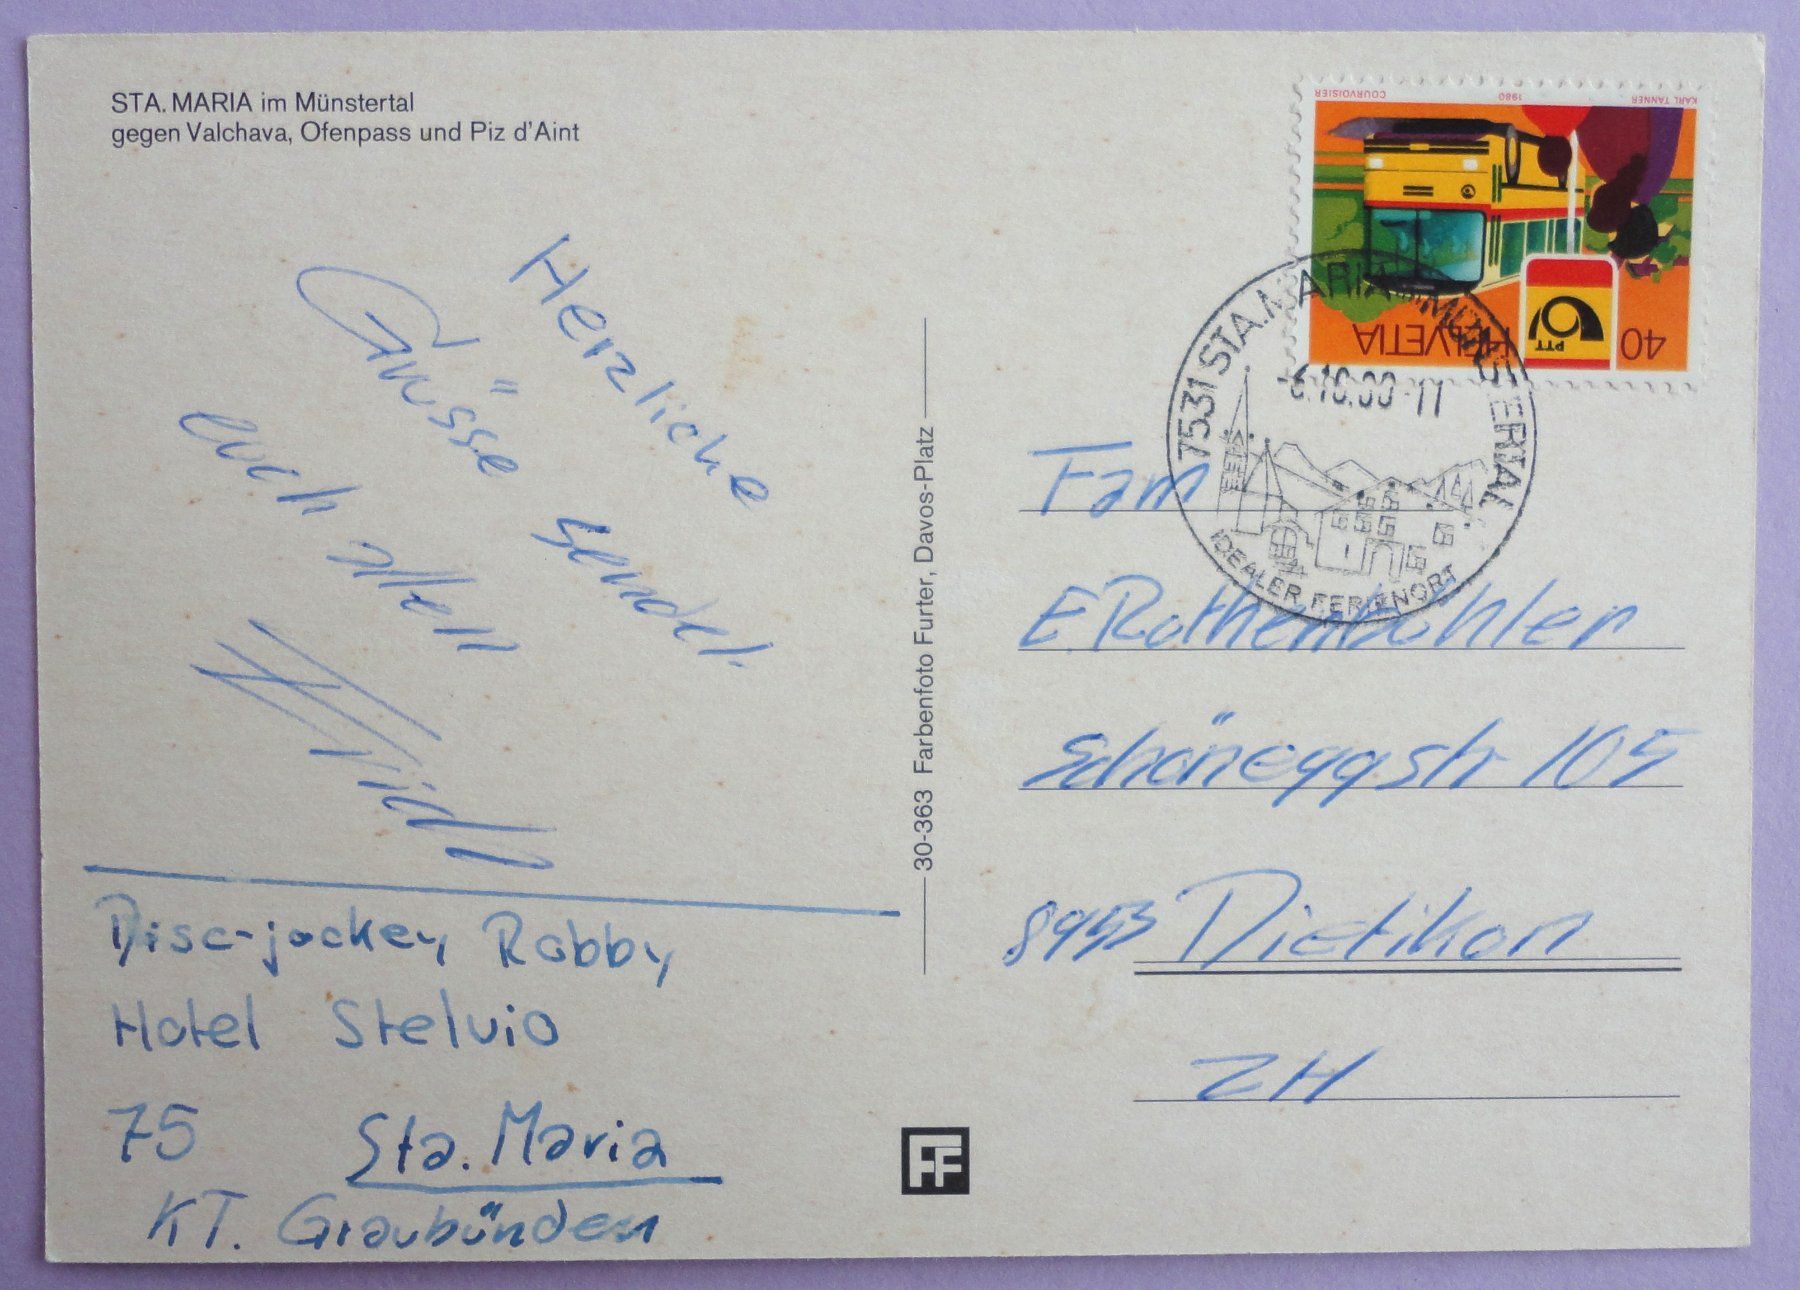 STA. MARIA im Münstertal
gegen Valchava, Ofenpass und Piz d'Aint
Herzliche
Grüsse sendet
euch allen
Disc-jockey Robby
Hotel Stelvio
75 Sta. Maria
KT. Graubünden
30-363 Farbenfoto Furter, Davos-Platz
FF
KARL TANNER 1980 COURVOISIER
HELVETIA 40
PTT
7531 STA. MARIA IM MÜNSTERTAL
-6.10.80-11
IDEALER FERIENORT
Fam
E. Rothenbühler
Schöneggstr 105
8953 Dietikon
ZH